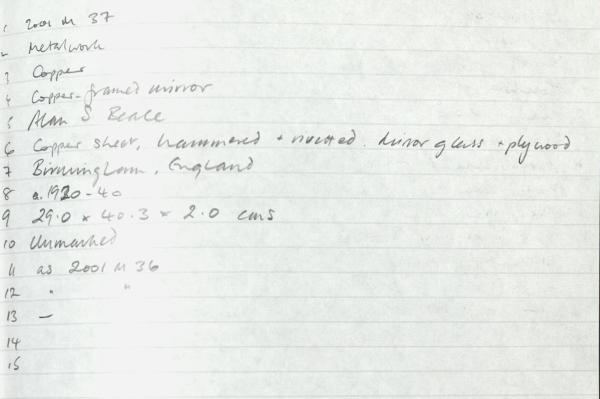 1 2001 M 37
2 Metalwork
3 Copper
4 Copper-framed mirror
5 Alan S Beale
6 Copper sheet, hammered + rivetted. Mirror glass + plywood
7 Birmingham, England
8 c. 1930-40
9 29.0 x 40.3 x 2.0 cms
10 Unmarked
11 as 2001 M 36
12 " "
13 —
14
15